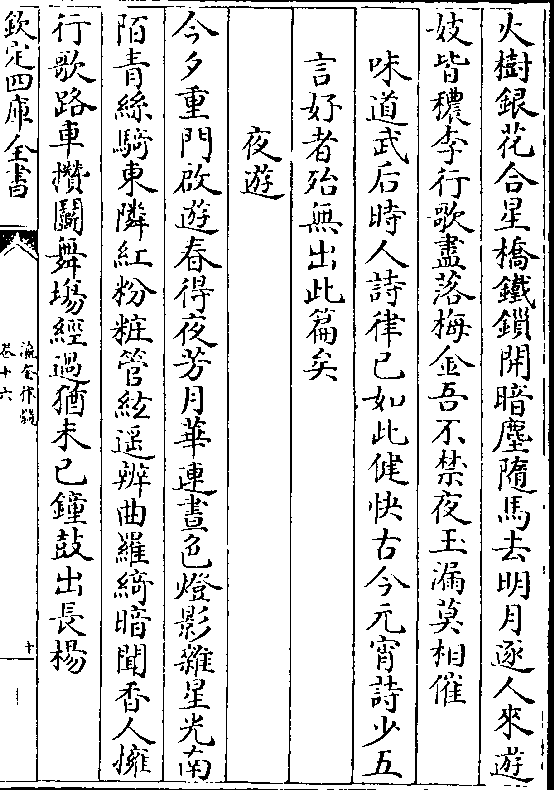 火樹銀花合星橋鐵鎖開暗塵隨馬去明月逐人來遊
妓皆穠李行歌盡落梅金吾不禁夜玉漏莫相催
味道武后時人詩律已如此健快古今元宵詩少五
言好者殆無出此篇矣
夜遊
今夕重門啟遊春得夜芳月華連晝色燈影雜星光南
陌青絲騎東隣紅粉粧管絃遥辨曲羅綺暗聞香人擁
行歌路車攢鬬舞塲經過猶未已鐘鼓出長楊
欽定四庫全書
瀛奎律髓
卷十六
十